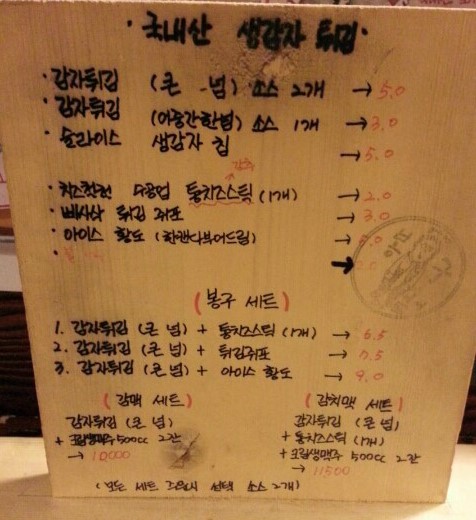 · 국내산 생감자 튀김 ·
· 감자튀김 (큰 넘) 소스 2개 → 5.0
· 감자튀김 (어중간한넘) 소스 1개 → 3.0
· 슬라이스 생감자 칩 → 5.0
강추
· 치즈 수공업 통치즈스틱 (1개) → 2.0
· 삐사사 튀김 쥐포 → 3.0
· 아이스 황도 (한캔다부어드림)
(봉구 세트)
1. 감자튀김 (큰 넘) + 통치즈스틱 (1개) → 6.5
2. 감자튀김 (큰 넘) + 튀김쥐포 → 7.5
3. 감자튀김 (큰 넘) + 아이스 황도 → 9.0
(감맥 세트)
감자튀김 (큰 넘)
+ 크림생맥주 500cc 2잔
→ 12000
(감치맥 세트)
감자튀김 (큰 넘)
+ 통치즈스틱 (1개)
+ 크림생맥주 500cc 2잔
→ 11500
(모든 세트 주문시 선택 소스 2개)